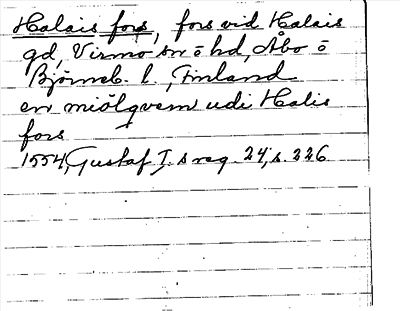 Halais fors, fors vid Halais
gd, Virmo sn o hd, Åbo o
Björneb. l., Finland
en miölqvern udi Halis
fors
1554, Gustaf I.s reg. 24, s. 226